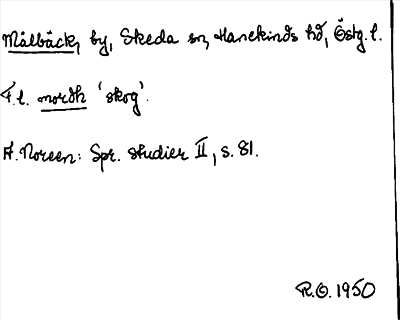 Målbäck, by, Skeda sn, Hanekinds hd, Östg. l.
F.l. mordh 'skog'.
A. Noreen: Spr. studier II, s. 81.
R.O. 1950